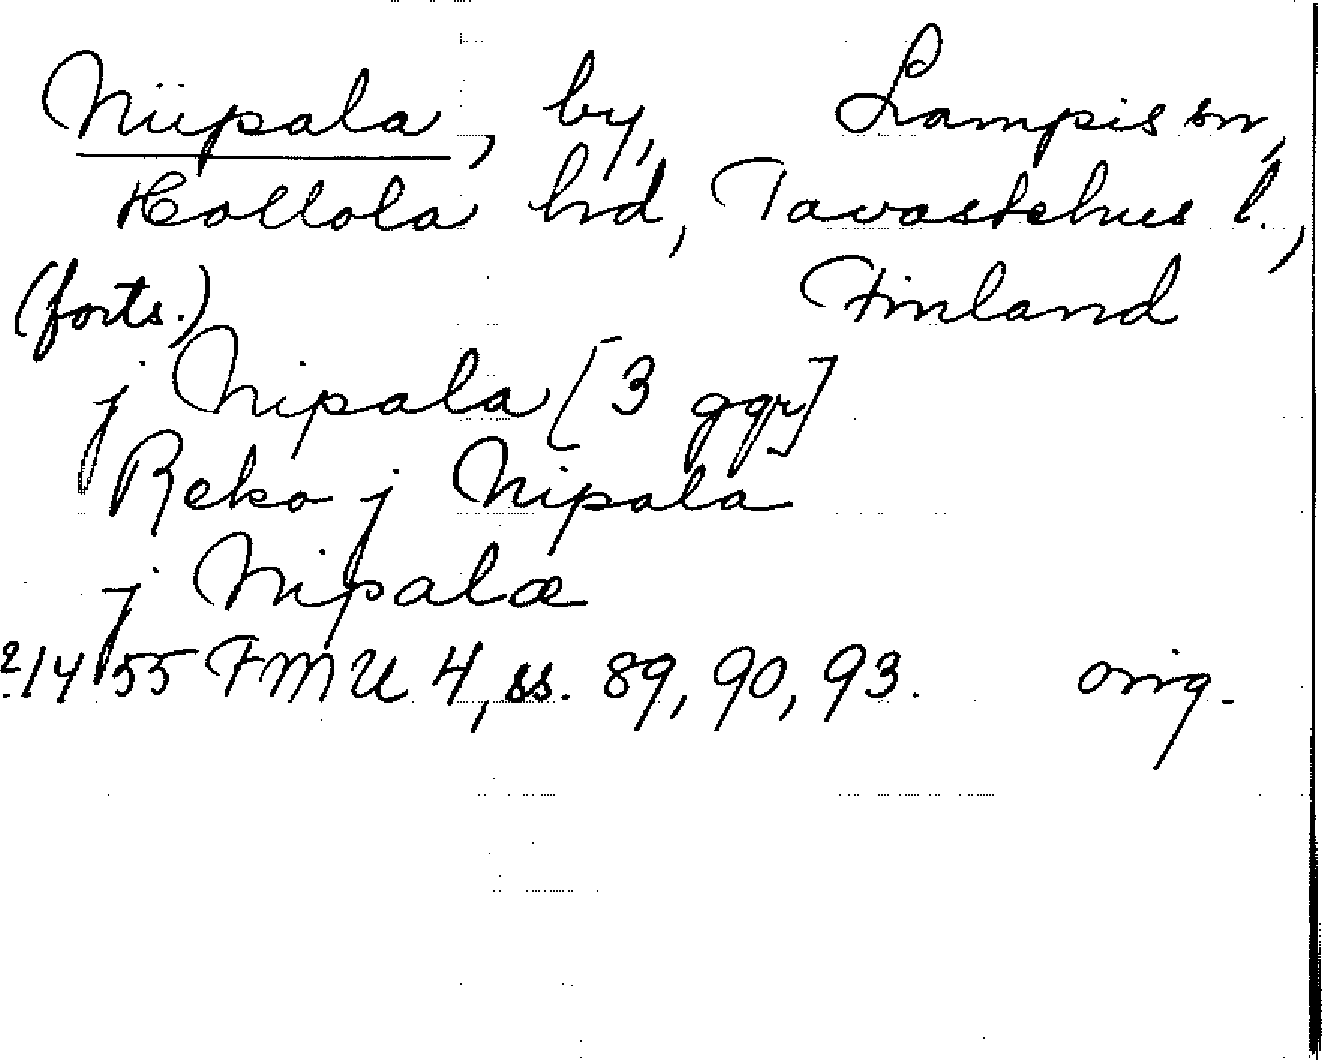 Niipala, by, Lampis sn,
Hollola hd, Tavastehus l.,
(forts.) Finland
j Nipala [3 ggr]
Reko j Nipala
j Nipalæ
2/4 55 FMU 4, ss. 89, 90, 93. orig.